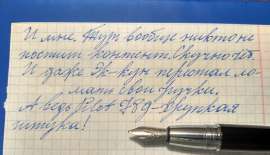 И мне. Тут вообще никто не
постит контент. Скучно.
И даже Эк-кун перестал ло-
мать свои ручки.
А ведь Pilot 78g - хрупкая
штука!